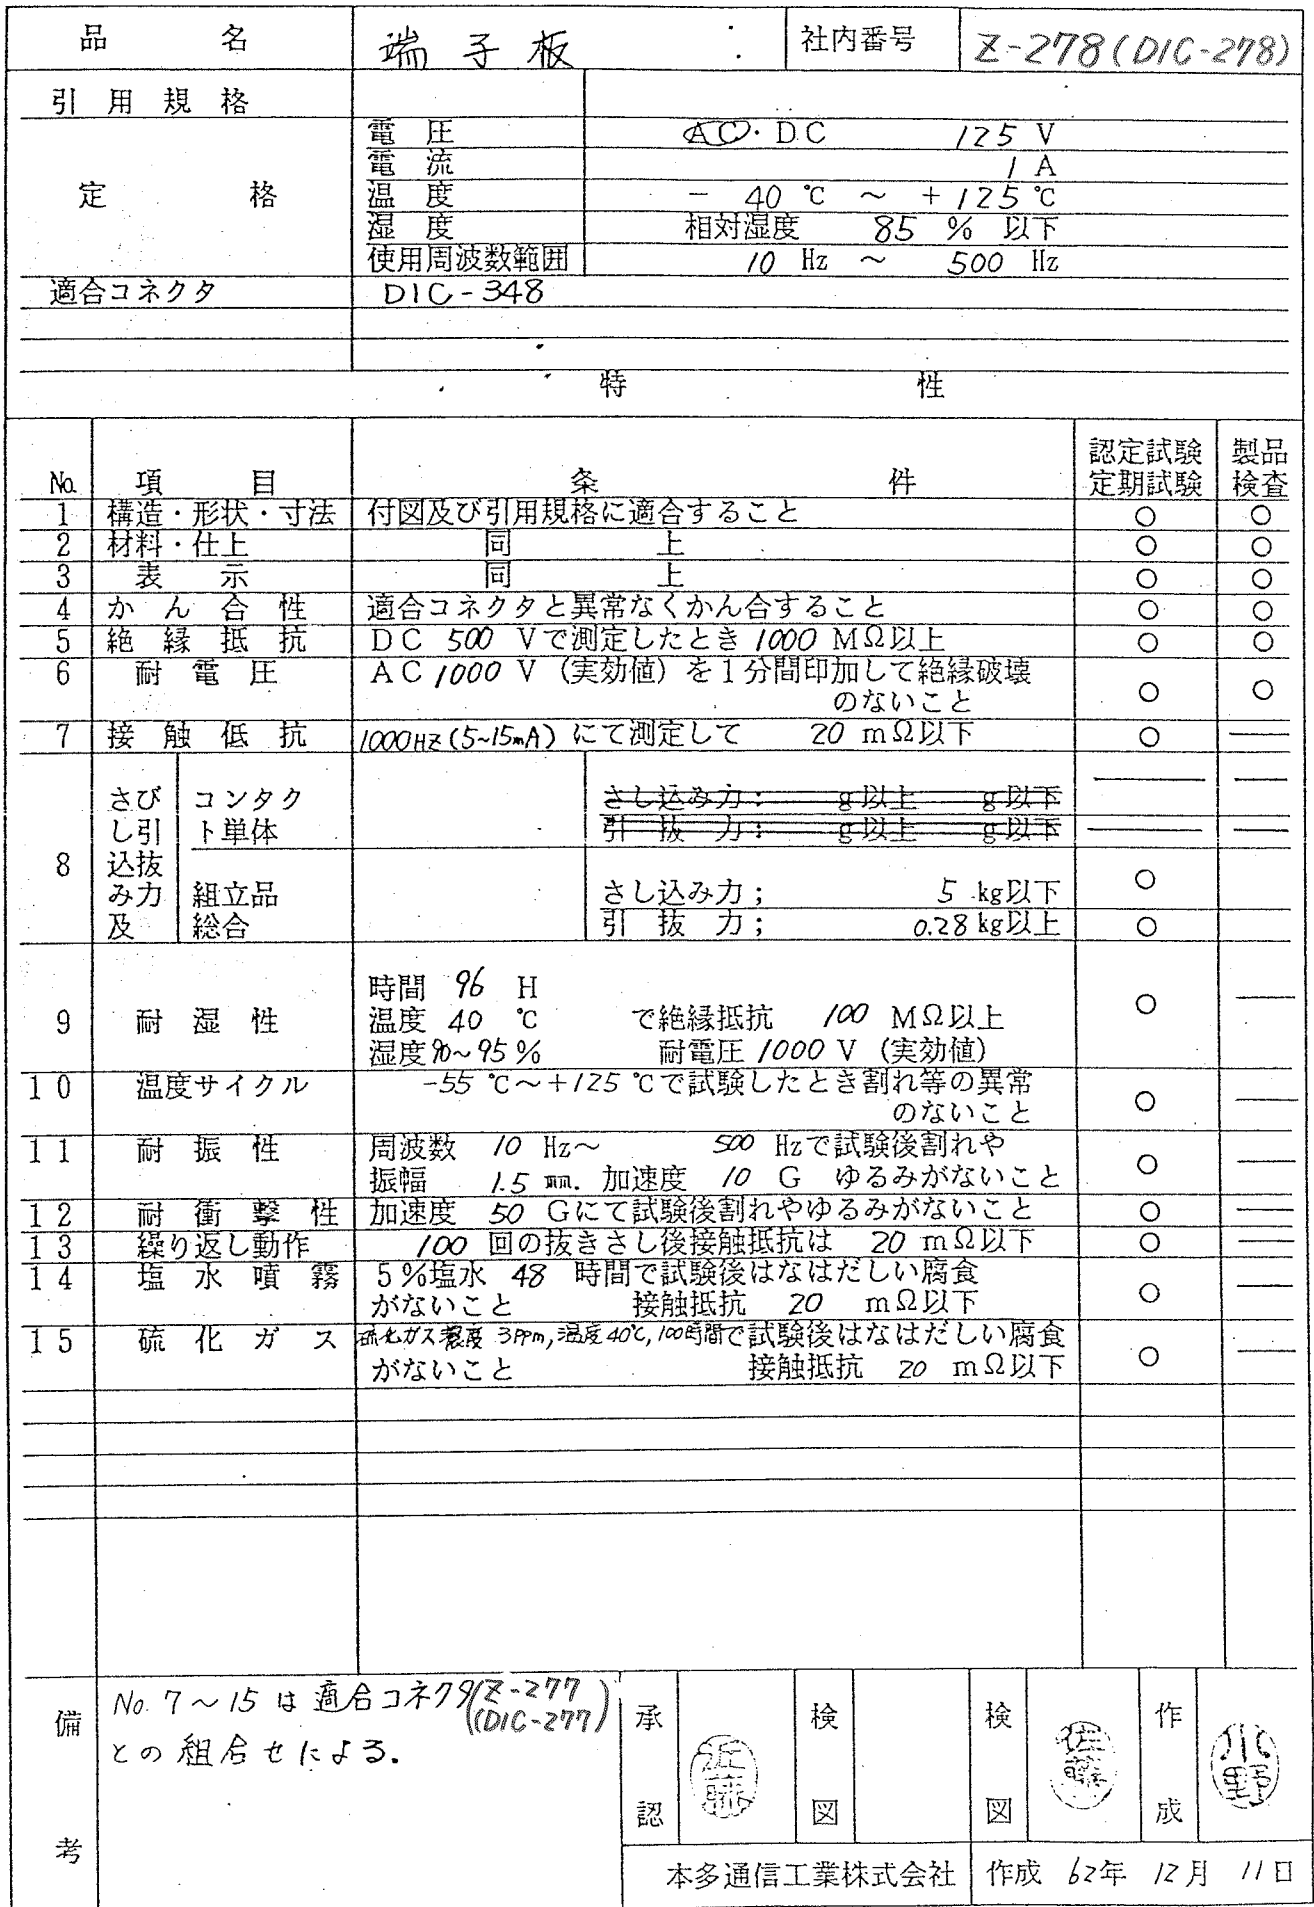 品名 端子板 社内番号 Z-278(DIC-278)
引用規格
定格
電圧 AC・DC 125 V
電流 1 A
温度 - 40 ℃ ～ +125℃
湿度 相対湿度 85 % 以下
使用周波数範囲 10 Hz ～ 500 Hz
適合コネクタ DIC-348
特性
No. 項目 条件 認定試験 定期試験 製品検査
1 構造・形状・寸法 付図及び引用規格に適合すること ○ ○
2 材料・仕上 同上 ○ ○
3 表示 同上 ○ ○
4 かん合性 適合コネクタと異常なくかん合すること ○ ○
5 絶縁抵抗 DC 500 Vで測定したとき 1000 MΩ以上 ○ ○
6 耐電圧 AC 1000 V (実効値) を1分間印加して絶縁破壊
のないこと ○ ○
7 接触低抗 1000Hz(5~15mA) にて測定して 20 mΩ以下 ○ ―
8 さし込み及び引抜力
コンタクト単体 さし込み力; g以上 g以下 ― ―
引抜力; g以上 g以下 ― ―
組立品総合 さし込み力; 5 kg以下 ○
引抜力; 0.28 kg以上 ○
9 耐湿性 時間 96 H
温度 40 ℃ で絶縁抵抗 100 MΩ以上 ○ ―
湿度90~95% 耐電圧 1000 V (実効値)
10 温度サイクル -55 ℃～+125 ℃で試験したとき割れ等の異常
のないこと ○ ―
11 耐振性 周波数 10 Hz～ 500 Hzで試験後割れや
振幅 1.5 mm. 加速度 10 G ゆるみがないこと ○ ―
12 耐衝撃性 加速度 50 Gにて試験後割れやゆるみがないこと ○ ―
13 繰り返し動作 100 回の抜きさし後接触抵抗は 20 mΩ以下 ○ ―
14 塩水噴霧 5%塩水 48 時間で試験後はなはだしい腐食
がないこと 接触抵抗 20 mΩ以下 ○ ―
15 硫化ガス 硫化ガス濃度 3PPm,温度40℃,100時間で試験後はなはだしい腐食
がないこと 接触抵抗 20 mΩ以下 ○ ―
備考
No. 7～15 は適合コネクタ(Z-277)
(DIC-277)
との組合せによる.
承認 近藤 検図 検図 佐藤 作成 小野
本多通信工業株式会社 作成 62年 12月 11日